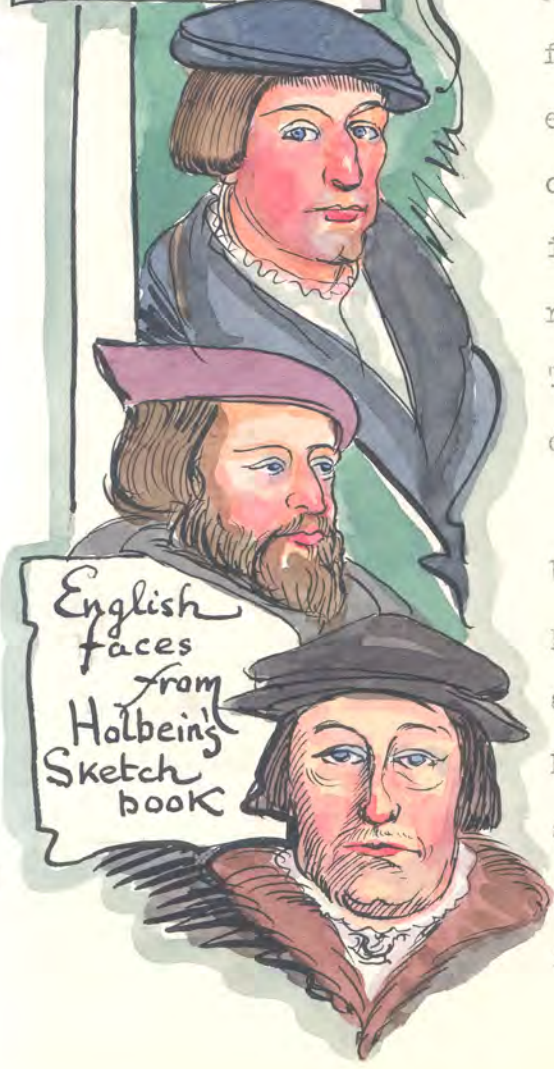 English
faces
from
Holbein's
Sketch
book